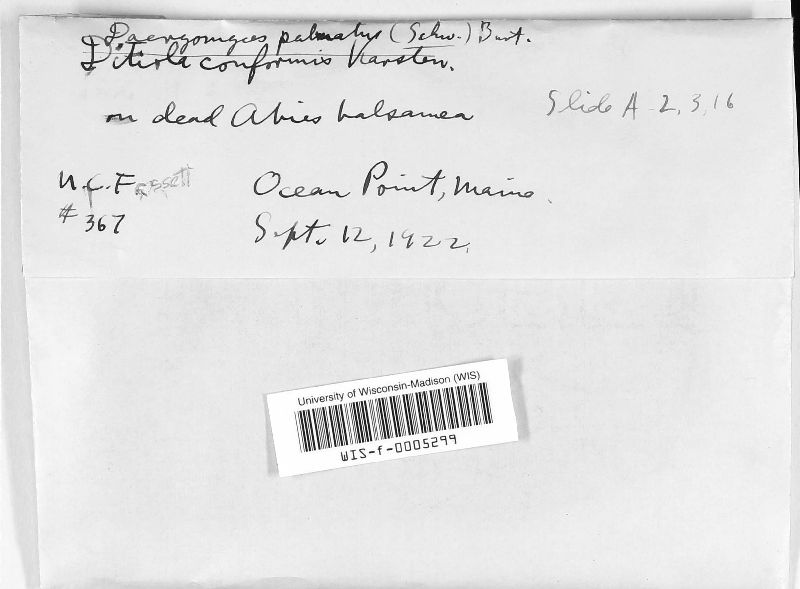 Dacryomyces palmatus (Schw.) Burt.
Ditiola conformis Karsten.
on dead Abies balsamea
Slide A-2, 3, 16
N.C. Fassett
Ocean Point, Maine.
# 367
Sept. 12, 1922.
University of Wisconsin-Madison (WIS)
WIS-f-0005299